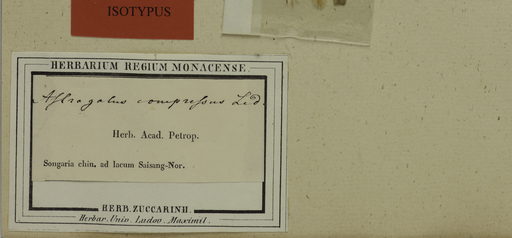 ISOTYPUS
HERBARIUM REGIUM MONACENSE.
Astragalus compressus Led.
Herb. Acad. Petrop.
Songaria chin. ad lacum Saisang-Nor.
HERB. ZUCCARINII.
Herbar. Univ. Ludov. Maximil.